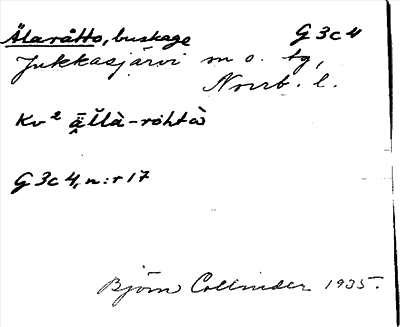 Älaråtto, buskage G 3 c 4
Jukkasjärvi sn o. tg,
Norrb. l.
Kv² ä̬ĭlà-ròhtὼ
G 3 c 4, n:r 17
Björn Collinder 1935.